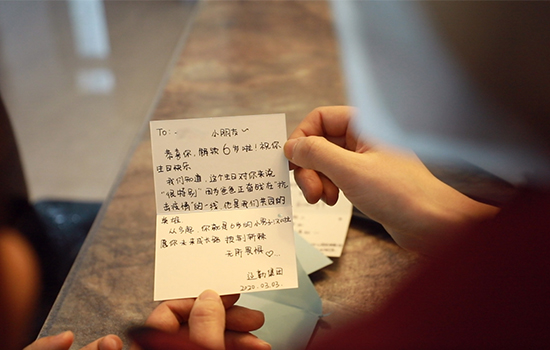 To: 小朋友
恭喜你,解锁6岁啦!祝你
生日快乐
我们知道,这个生日对你来说
"很特别"因为爸爸正奋战在"抗
击疫情"的一线,他是我们共同的
英雄
从今起,你就是6岁的小男子汉啦
愿你未来成长路 披荆斩棘
无所畏惧♡...
运勤集团
2020.03.03.